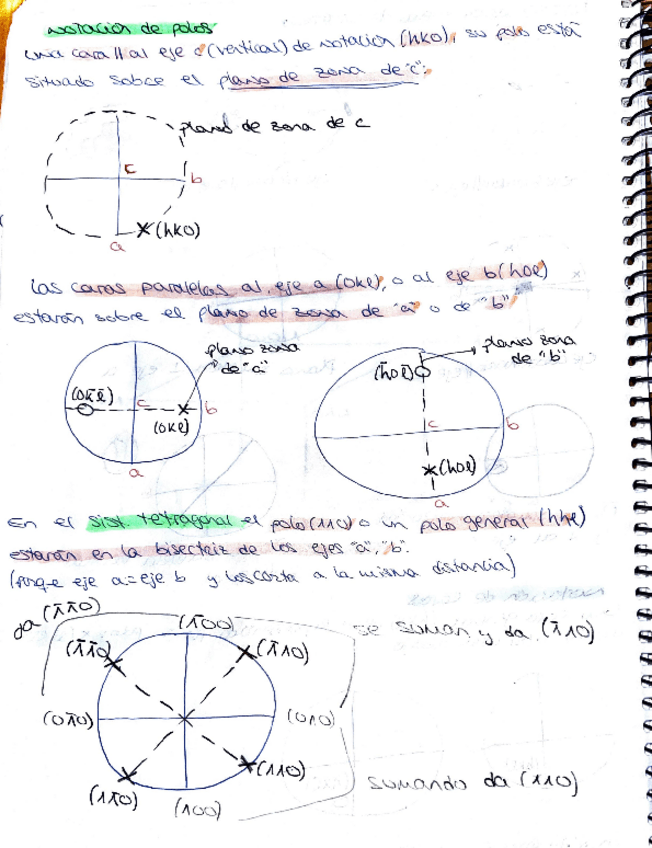 notación de polos
una cara // al eje c (vertical) de notación (hk0), su polo está
situado sobre el plano de zona de "c":
plano de zona de c
c
b
(hk0)
a
las caras paralelas al eje a (0kl), o al eje b (h0l)
estarán sobre el plano de zona de "a" o de "b"
plano zona
de "a"
plano zona
de "b"
(0k̄l̄)
c
b
(0kl)
a
(h̄0l̄)
c
b
(h0l)
a
En el sist. tetragonal el polo (110) o un polo general (hhl)
estarán en la bisectriz de los ejes "a", "b".
(porque eje a = eje b y los corta a la misma distancia)
da (1̄1̄0)
(1̄00)
se suman y da (1̄10)
(1̄1̄0)
(1̄10)
(01̄0)
(010)
(110)
(11̄0)
(100)
sumando da (110)